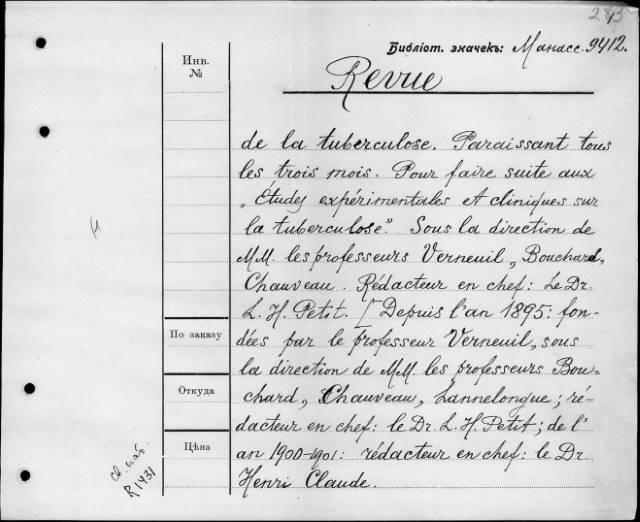 243
Библіот. значекъ: Манасс. 9412.
Инв. №
Revue
de la tuberculose. Paraissant tous
les trois mois. Pour faire suite aux
„Études expérimentales et cliniques sur
la tuberculose." Sous la direction de
MM. les professeurs Verneuil, Bouchard,
Chauveau. Rédacteur en chef: Le Dr.
L. H. Petit. [Depuis l'an 1895: fon-
По заказу
dées par le professeur Verneuil, sous
la direction de MM. les professeurs Bou-
Откуда
chard, Chauveau, Lannelongue; ré-
dacteur en chef: le Dr. L. H. Petit; de l'
Цѣна
an 1900-1901: rédacteur en chef: le Dr.
Henri Claude.
R 1431